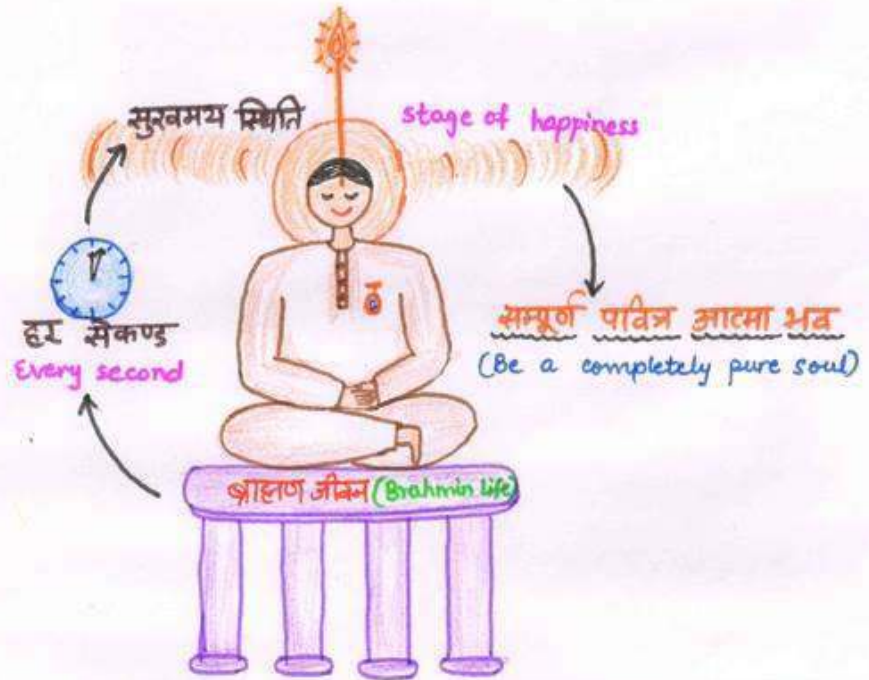 सुखमय स्थिति
stage of happiness
हर सेकण्ड
Every second
सम्पूर्ण पवित्र आत्मा भव
(Be a completely pure soul)
ब्राह्मण जीवन (Brahmin life)